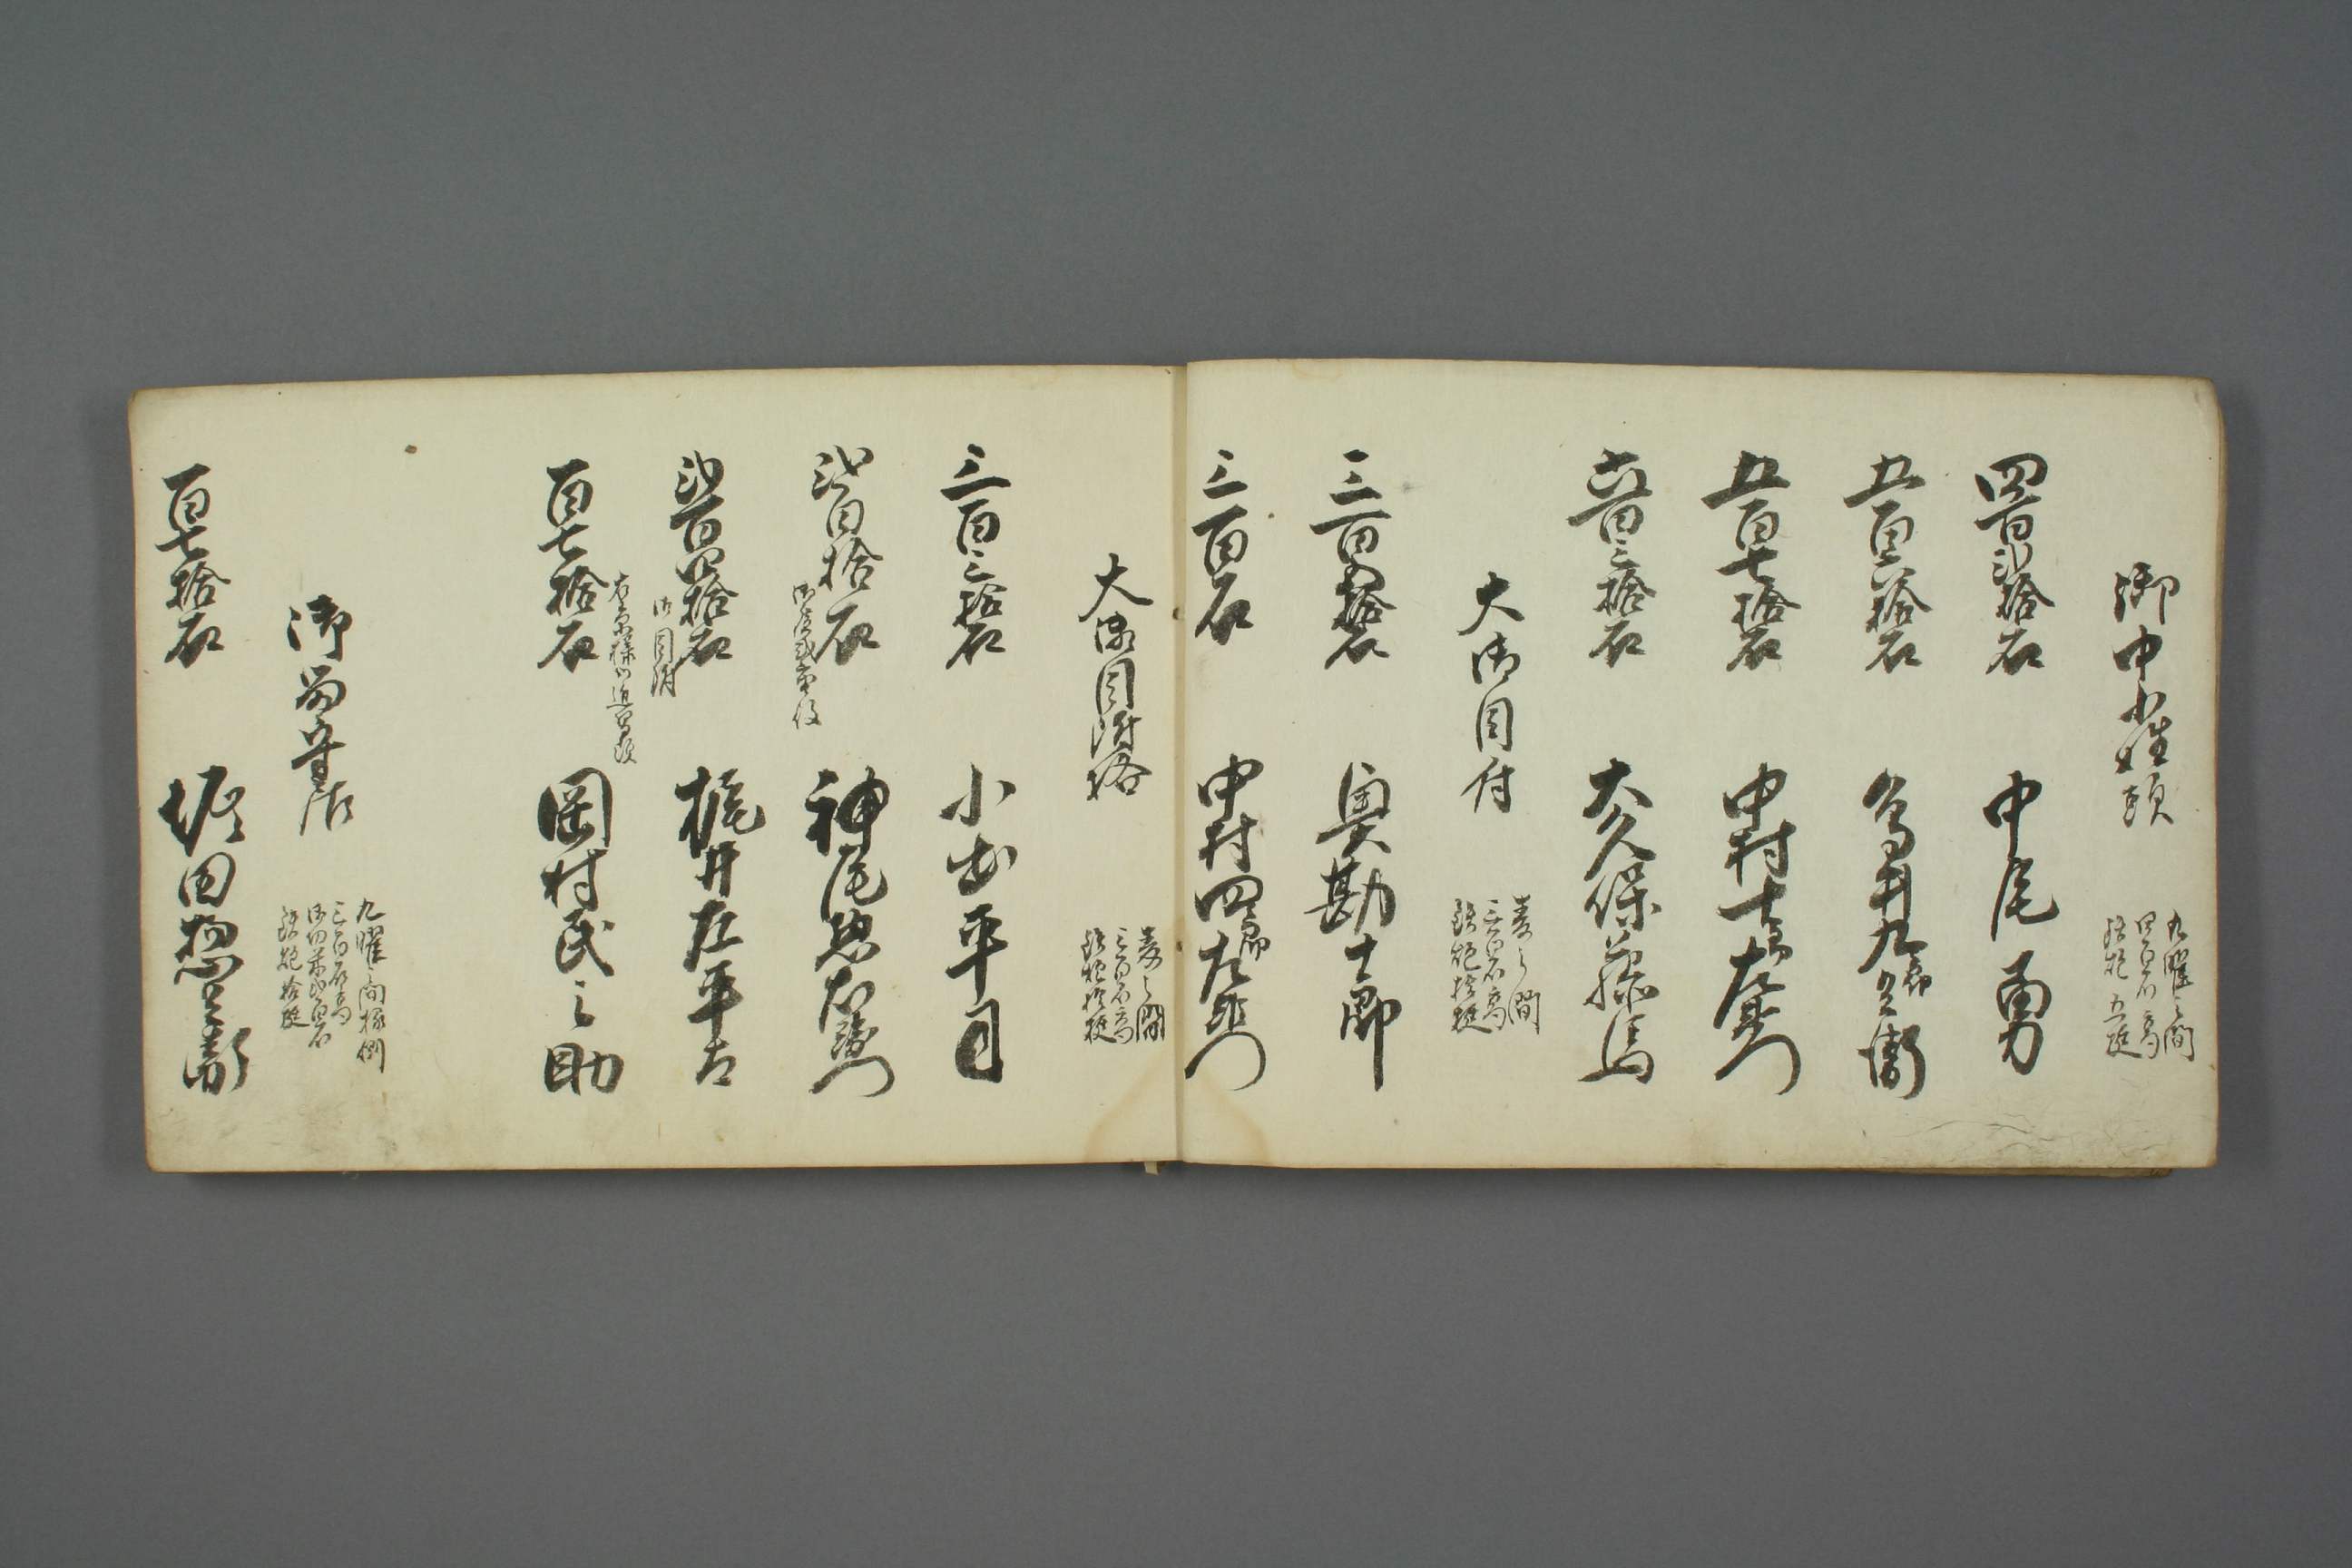 御中小姓頭
九曜之間
四百石高
鉄炮五挺
四百弐拾石 中尾勇
五百六拾石 鳥井九郎兵衛
五百七拾石 中村十郎左衛門
六百三拾石 大久保藤馬
大御目付
菱之間
三百石高
鉄炮拾挺
三百四拾石 奥勘十郎
三百石 中村四郎左衛門
大御目附格
菱之間
三百石高
鉄炮拾挺
三百三拾石 小出平目
弐百拾石 神尾惣右衛門
弐百四拾石 梶井左平太
御目附
百七拾石 岡村民之助
御留守居
九曜之間掾側
三百石高
御役米弐百石
鉄炮拾挺
百七拾石 堀田惣兵衛